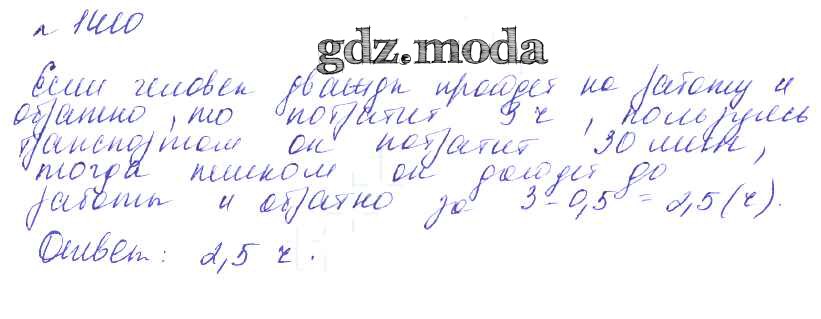 № 1410
gdz.moda
Если человек дважды пройдет на работу и
обратно, то потратит 3 ч, пользуясь
транспортом он потратит 30 мин,
тогда пешком он дойдет до
работы и обратно за 3 - 0,5 = 2,5 (ч).
Ответ: 2,5 ч.